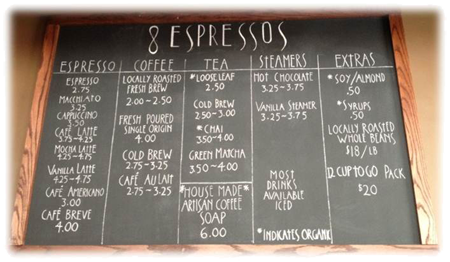 8 ESPRESSOS
ESPRESSO
ESPRESSO
2.75
MACCHIATO
3.25
CAPPUCCINO
3.50
CAFÉ LATTE
3.75-4.25
MOCHA LATTE
4.25-4.75
VANILLA LATTE
4.25-4.75
CAFÉ AMERICANO
3.00
CAFÉ BREVE
4.00
COFFEE
LOCALLY ROASTED
FRESH BREW
2.00-2.50
FRESH POURED
SINGLE ORIGIN
4.00
COLD BREW
2.75-3.25
CAFÉ AU LAIT
2.75-3.25
TEA
*LOOSE LEAF
2.50
COLD BREW
2.50-3.00
*CHAI
3.50-4.00
GREEN MATCHA
3.50-4.00
*HOUSE MADE*
ARTISAN COFFEE
SOAP
6.00
STEAMERS
HOT CHOCOLATE
3.25-3.75
VANILLA STEAMER
3.25-3.75
MOST
DRINKS
AVAILABLE
ICED
*INDICATES ORGANIC
EXTRAS
*SOY/ALMOND
.50
*SYRUPS
.50
LOCALLY ROASTED
WHOLE BEANS
$18/LB
12 CUP TO GO PACK
$20